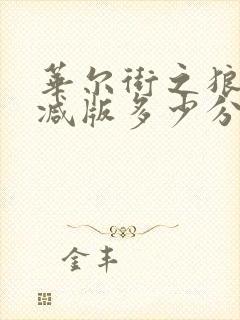 华尔街之狼
减版多少分
金丰